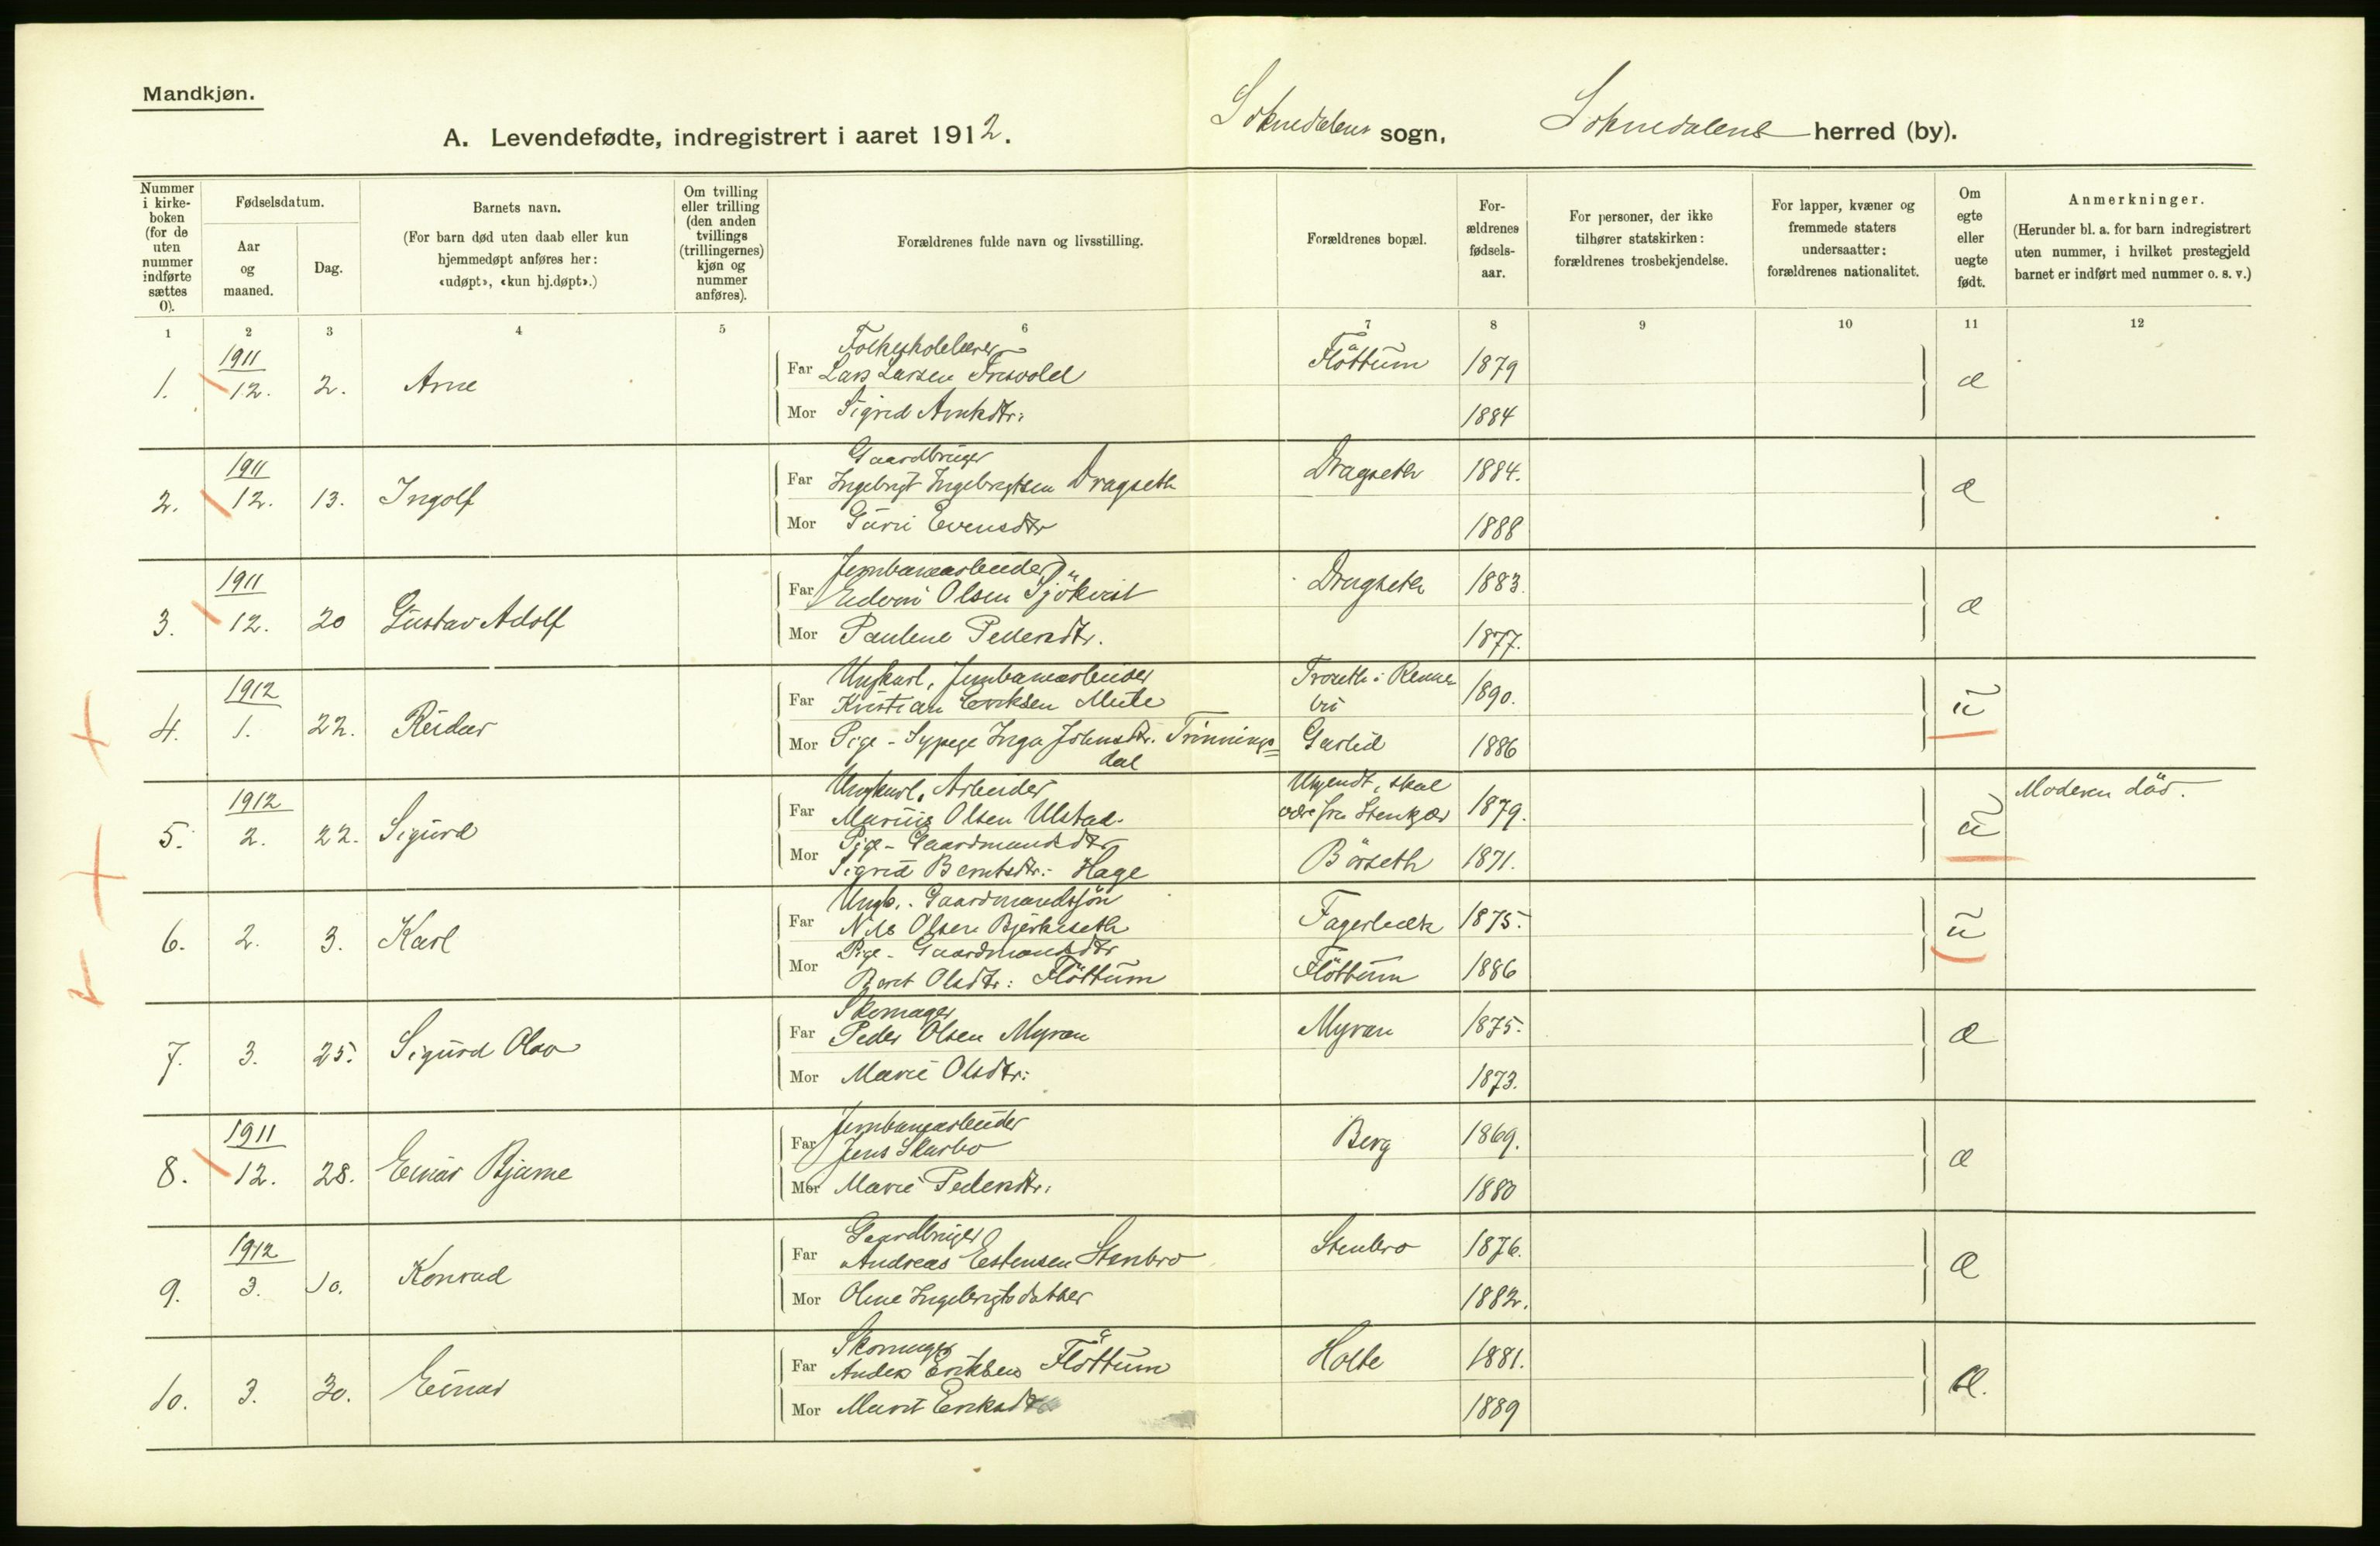 Mandkjøn.
A. Levendefødte, indregistrert i aaret 1912. Soknedalens sogn, Soknedalens herred (by).
Nummer i kirkeboken (for de uten nummer indførte sættes 0).
Fødselsdatum.
Aar og maaned.
Dag.
Barnets navn.
(For barn død uten daab eller kun hjemmedøpt anføres her: «udøpt», «kun hj.døpt».)
Om tvilling eller trilling (den anden tvillings (trillingernes) kjøn og nummer anføres).
Forældrenes fulde navn og livsstilling.
Forældrenes bopæl.
Forældrenes fødselsaar.
For personer, der ikke tilhører statskirken: forældrenes trosbekjendelse.
For lapper, kvæner og fremmede staters undersaatter: forældrenes nationalitet.
Om egte eller uegte født.
Anmerkninger.
(Herunder bl. a. for barn indregistrert uten nummer, i hvilket prestegjeld barnet er indført med nummer o. s. v.)
1 2 3 4 5 6 7 8 9 10 11 12
1911
Folkeskolelærer
1. 12. 2. Arne Far Lars Larsen Fresvold Fløttum 1879 æ
Mor Sigrid Arntsdtr: 1884
1911
Gaardbruger
2. 12. 13. Ingolf Far Ingebrigt Ingebrigtsen Dragseth Dragseth 1884. æ
Mor Guri Evensdtr 1888
1911
Jernbanearbeider
3. 12. 20 Gustav Adolf Far Edvin Olsen Sjökvist Dragseth 1883. æ
Mor Pauline Pedersdtr. 1877.
1912
Ungkarl, Jernbanearbeider Troseth i Renne
4. 1. 22. Reidar Far Kristian Eriksen Mule bu 1890. ü
Mor Pige - Sypige Inga Johnsdtr. Trinnings= Garlid 1886
dal
1912
Ungkarl, Arbeider Ukjendt, skal Moderen död.
5. 2. 22. Sigurd Far Marius Olsen Ulstad. være fra Stenkjær 1879. ü
Mor Pige - Gaardmandsdtr
Sigrid Berntsdtr: Hage Börseth 1871.
Ungk. Gaardmandssjön
6. 2. 3. Karl Far Nils Olsen Bjerkeseth Fagerbæk 1875. ü
Mor Pige - Gaardmandsdtr
Beret Olsdtr: Fløttum Fløttum 1886
Skomager
7. 3. 25. Sigurd Olav Far Peder Olsen Myran Myran 1875. æ
Mor Marie Olsdtr: 1873.
1911
Jernbanearbeider
8. 12. 28. Einar Bjarne Far Jens Skarbo Berg 1869. æ
Mor Marie Pedersdtr: 1880
1912
Gaardbruger
9. 3. 10. Konrad Far Andreas Estensen Stenbro Stenbro 1876. æ
Mor Oline Ingebrigtsdatter 1882.
Skomager
10. 3. 30. Einar Far Anders Eriksen Fløttum Holte 1881. æ.
Mor Marit Eriksdtr 1889